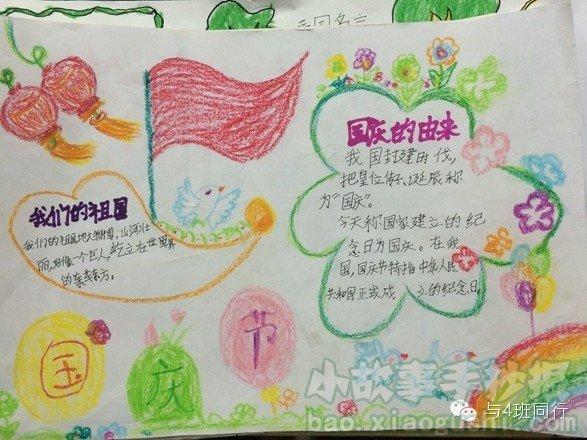 我们的祖国
我们的祖国地大物博，山河壮
丽，好像一个巨人，屹立在世界
的东方。
国庆的由来
我国封建时代，
把皇位、诞辰称
为“国庆”。
今天称国家建立的纪
念日为国庆。在我
国，国庆节特指中华人民
共和国正式成立的纪念日。
国庆节
小故事手抄报
bao.xiaogushi
与4班同行